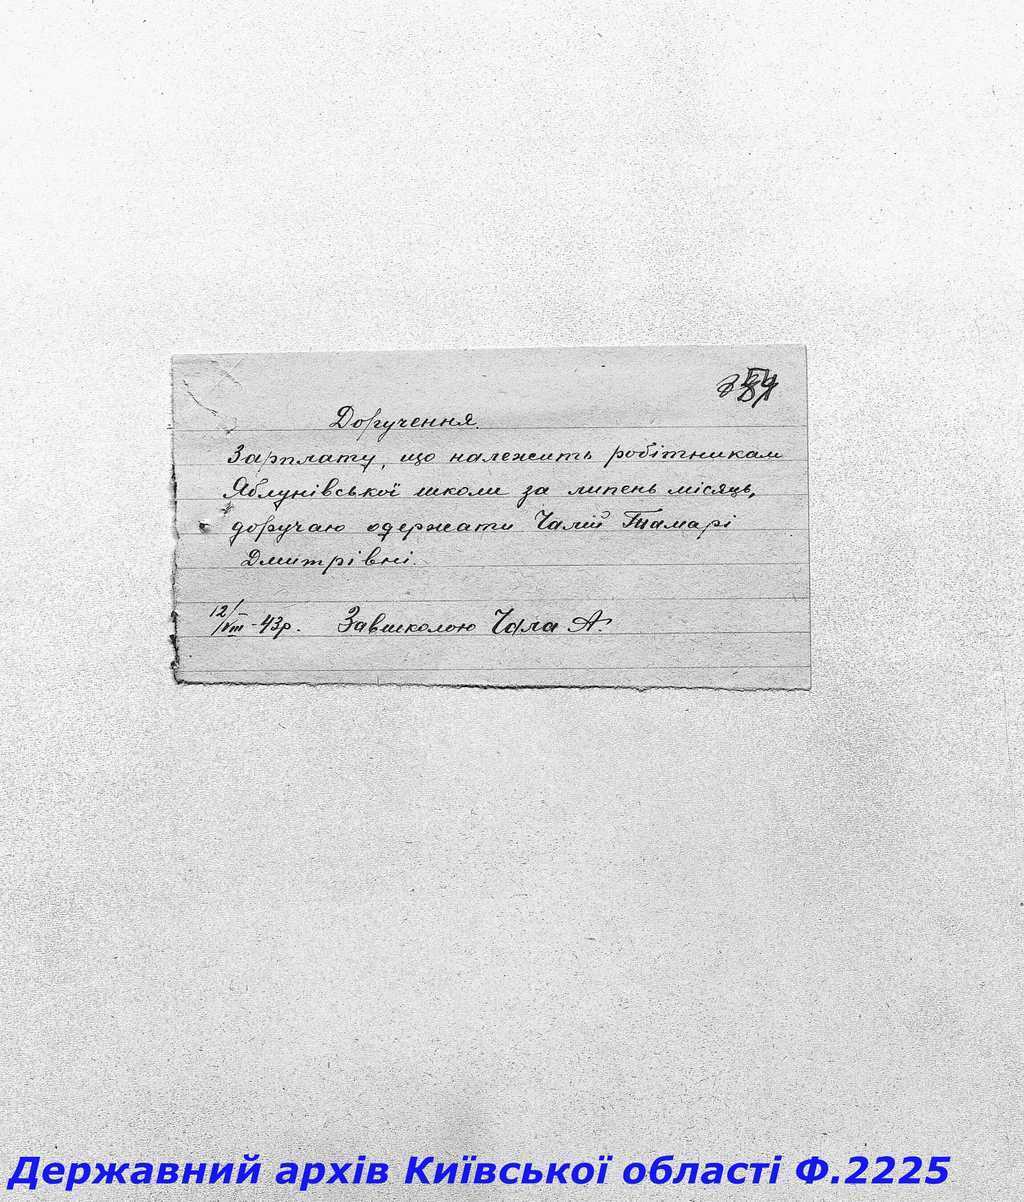 Доручення.
Зарплату, що належить робітникам
Яблунівської школи за липень місяць,
доручаю одержати Чалій Тамарі
Дмитрівні.
12/VIII-43р. Завшколою Чала А.
Державний архів Київської області Ф.2225